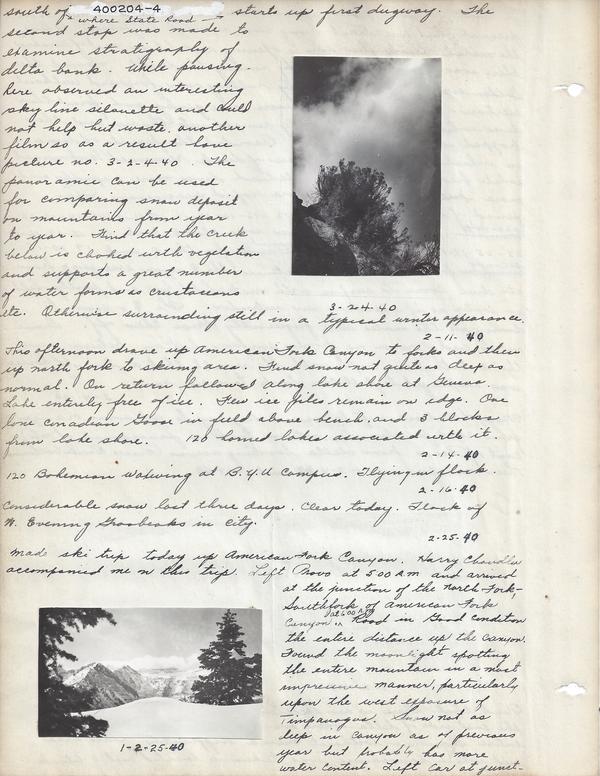 400204-4
south of where State Road starts up first dugway. The
second stop was made to
examine stratigraphy of
delta bank. While pausing
here observed an interesting
sky line silouette and could
not help but waste another
film so as a result have
picture no. 3-2-4-40. The
panoramic can be used
for comparing snow deposit
on mountains from year
to year. Find that the creek
below is choked with vegetation
and supports a great number
of water forms as crustaceans
etc. Otherwise surrounding still in a typical winter appearance.
3-2-4-40
2-11-40
This afternoon drove up American Fork Canyon to forks and then
up north fork to skiing area. Find snow not quite as deep as
normal. On return followed along lake shore at Geneva.
Lake entirely free of ice. Few ice piles remain on edge. One
lone Canadian Goose in field above bench, and 3 blocks
from lake shore. 120 horned larks associated with it.
2-14-40
120 Bohemian Waxwing at B.Y.U Campus. Flying in flock.
2-16-40
Considerable snow last three days. Clear today. Flock of
W. Evening Grosbeaks in City.
2-25-40
Made ski trip today up American Fork Canyon. Harry Chandler
accompanied me on this trip. Left Provo at 5:00 A.M and arrived
at the junction of the North Fork-
Southfork of American Fork
Canyon at 6:00 A.M. Road in Good condition
the entire distance up the canyon.
Found the moonlight spotting
the entire mountain in a most
impressive manner, particularly
upon the west exposure of
Timpanogos. Snow not as
deep in canyon as of previous
year but probably has more
water content. Left car at junct-
1-2-25-40